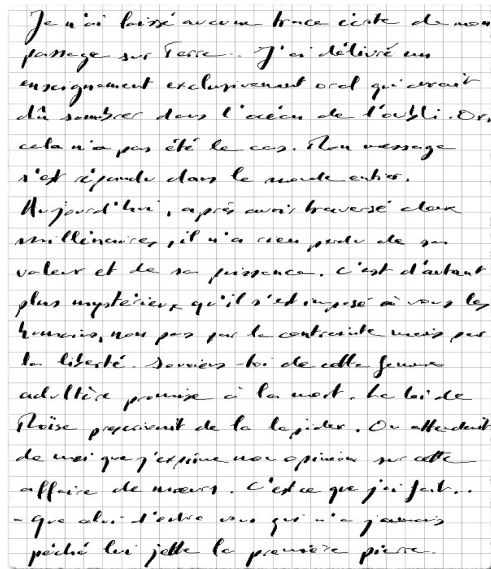 Je n'ai laissé aucune trace écrite de mon
passage sur Terre.. J'ai délivré un
enseignement exclusivement oral qui aurait
dû sombrer dans l'océan de l'oubli. Or,
cela n'a pas été le cas. Mon message
s'est répandu dans le monde entier.
Aujourd'hui, après avoir traversé deux
millénaires, il n'a rien perdu de sa
valeur et de sa puissance. C'est d'autant
plus mystérieux qu'il s'est imposé à vous les
humains, non pas par la contrainte mais par
la liberté. Souviens-toi de cette femme
adultère promise à la mort. La loi de
Moïse préconisait de la lapider. On attendait
de moi que j'exprime mon opinion sur cette
affaire de mœurs. C'est ce que j'ai fait..
- Que celui d'entre vous qui n'a jamais
péché lui jette la première pierre.